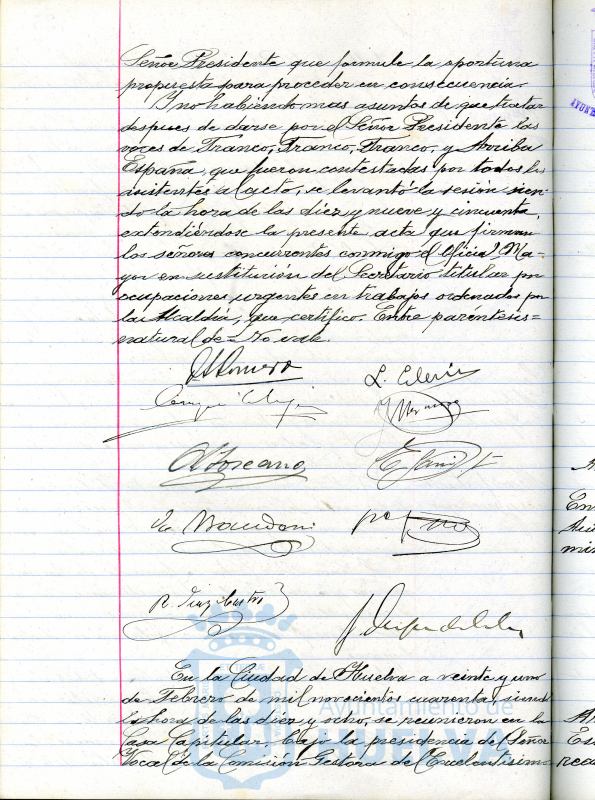 Señor Presidente que formule la oportuna
propuesta para proceder en consecuencia.
Y no habiendo mas asuntos de que tratar
despues de darse por el Señor Presidente las
voces de Franco, Franco, Franco, y Arriba
España, que fueron contestadas por todos los
asistentes al acto, se levantó la sesión sien-
do la hora de las diez y nueve y cincuenta,
extendiéndose la presente acta que firman
los señores concurrentes conmigo el Oficial Ma-
yor en sustitución del Secretario titular por
ocupaciones urgentes en trabajos ordenados por
la Alcaldía, que certifico. Entre parentesis=
natural de= No vale.
R. Diaz Castro
En la Ciudad de Huelva a veinte y uno
de Febrero de mil novecientos cuarenta, siendo
la hora de las diez y ocho, se reunieron en la
Casa Capitular, bajo la presidencia del Señor
Vocal de la Comisión Gestora del Excelentísimo
Ayuntamiento de
HUELVA